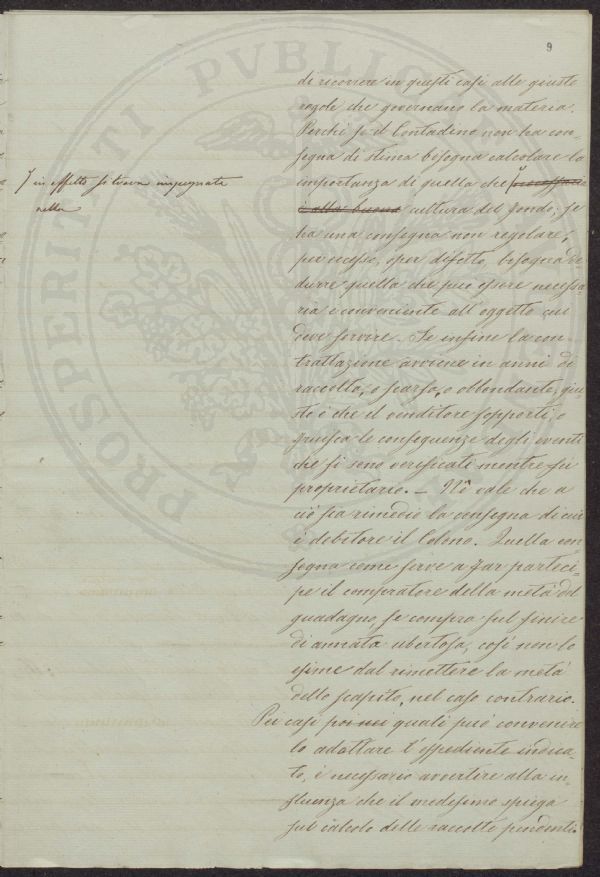 PROSPERITATI PVBLIC
9
di ricorrere in questi casi alle giuste
regole che governano la materia.
Perchè se il Contadino non ha con=
segna di stima bisogna calcolare la
importanza di quella che
cultura del fondo; se
ha una consegna non regolare,
per eccesso, o per difetto, bisogna ri=
durre quella che può essere necessa=
ria e conveniente all'oggetto cui
deve servire. Se infine la con=
trattazione avviene in anni di
raccolta, o scarsa, o abbondante, giu=
sto è che il venditore sopporti, o
fruisca le conseguenze degli eventi
che si sono verificati mentre fu
proprietario. _ Nè vale che a
ciò sia rimedio la consegna di cui
è debitore il Colono. Quella con=
segna come serve a far parteci=
pe il compratore della metà del
guadagno, se compra sul finire
di annata ubertosa, così non lo
esime dal rimettere la metà
dello scapito, nel caso contrario.
Pei casi poi nei quali può convenire
lo adottare l'espediente indica=
to, è necessario avvertire alla in=
fluenza che il medesimo spiega
sul calcolo delle raccolte pendenti.
in effetto si trova impegnata
nella